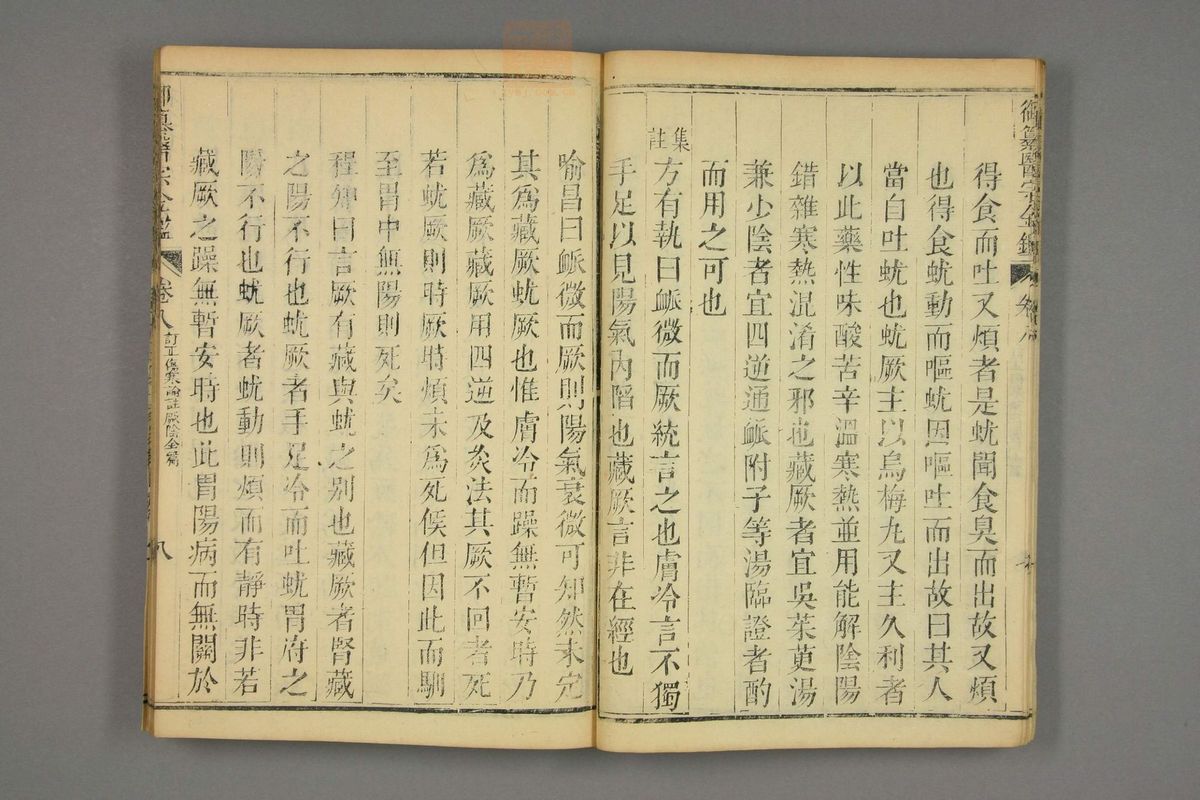 御纂醫宗金鑑 卷八
得食而吐又煩者是蚘聞食臭而出故又煩
也得食蚘動而嘔蚘因嘔吐而出故曰其人
當自吐蚘也蚘厥主以烏梅丸又主久利者
以此藥性味酸苦辛溫寒熱並用能解陰陽
錯雜寒熱混淆之邪也藏厥者宜吳茱萸湯
兼少陰者宜四逆通脈附子等湯臨證者酌
而用之可也
集註
方有執曰脈微而厥統言之也膚冷言不獨
手足以見陽氣內陷也藏厥言非在經也
喻昌曰脈微而厥則陽氣衰微可知然未定
其爲藏厥蚘厥也惟膚冷而躁無暫安時乃
爲藏厥藏厥用四逆及灸法其厥不回者死
若蚘厥則時厥時煩未爲死候但因此而馴
至胃中無陽則死矣
程知曰言厥有藏與蚘之別也藏厥者腎藏
之陽不行也蚘厥者手足冷而吐蚘胃府之
陽不行也蚘厥者蚘動則煩而有靜時非若
藏厥之躁無暫安時也此胃陽病而無關於
御纂醫宗金鑑 卷八 訂正傷寒論註厥陰全篇 八